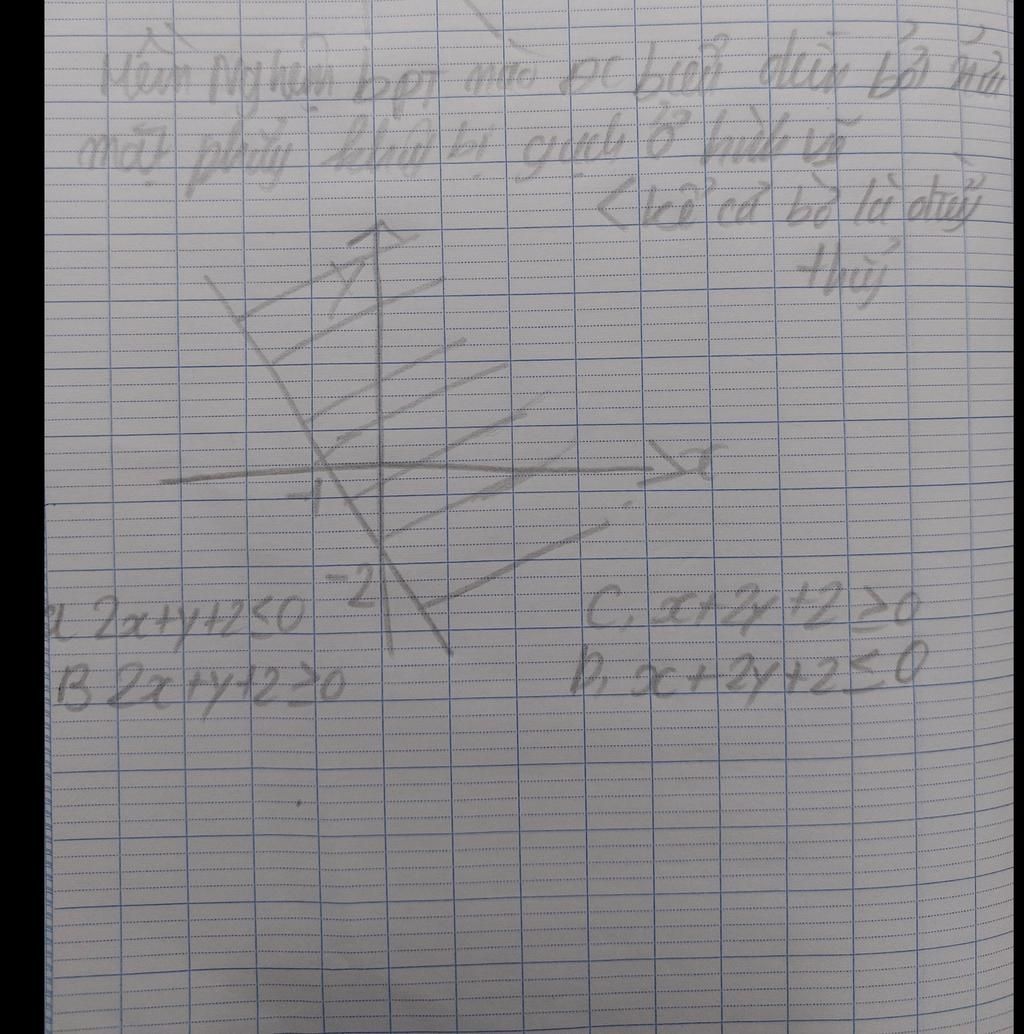 Miền Nghiệm bpt nào ĐC biểu diễn bởi nửa
mặt phẳng không bị gạch ở hình vẽ
(kể cả bờ là đường
thẳng
y
x
-1
-2
A 2x+y+2≤0
C, x+2y+2≥0
B 2x+y+2≥0
D, x+2y+2≤0